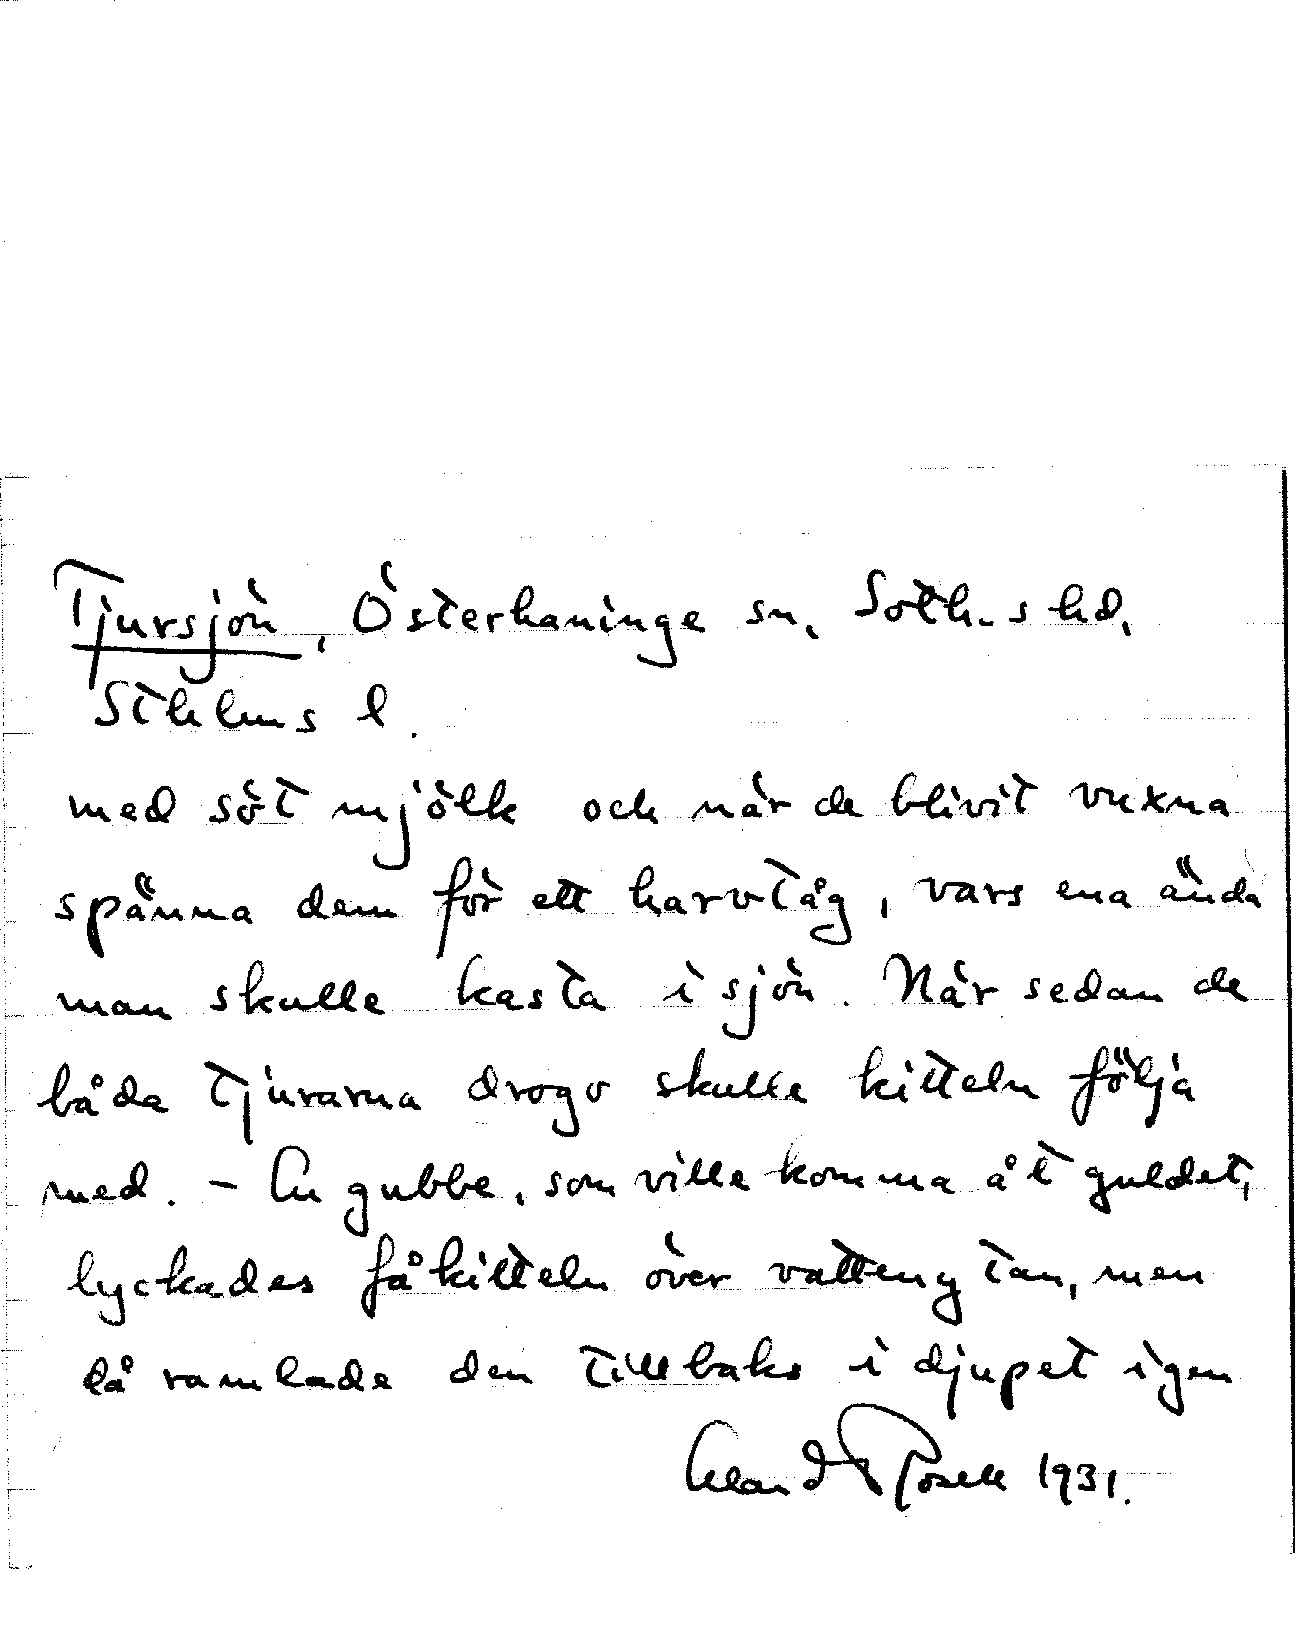 Tjursjön, Österhaninge sn. Soth.s hd.
Sthlms l.
med söt mjölk och när de blivit vuxna
spänna dem för ett harvtåg, vars ena ända
man skulle kasta i sjön. När sedan de
båda tjurarna drogo skulle kitteln följa
med. - En gubbe, som ville komma åt guldet,
lyckades få kitteln över vattenytan, men
då ramlade den tillbaks i djupet igen
Erland Rosell 1931.